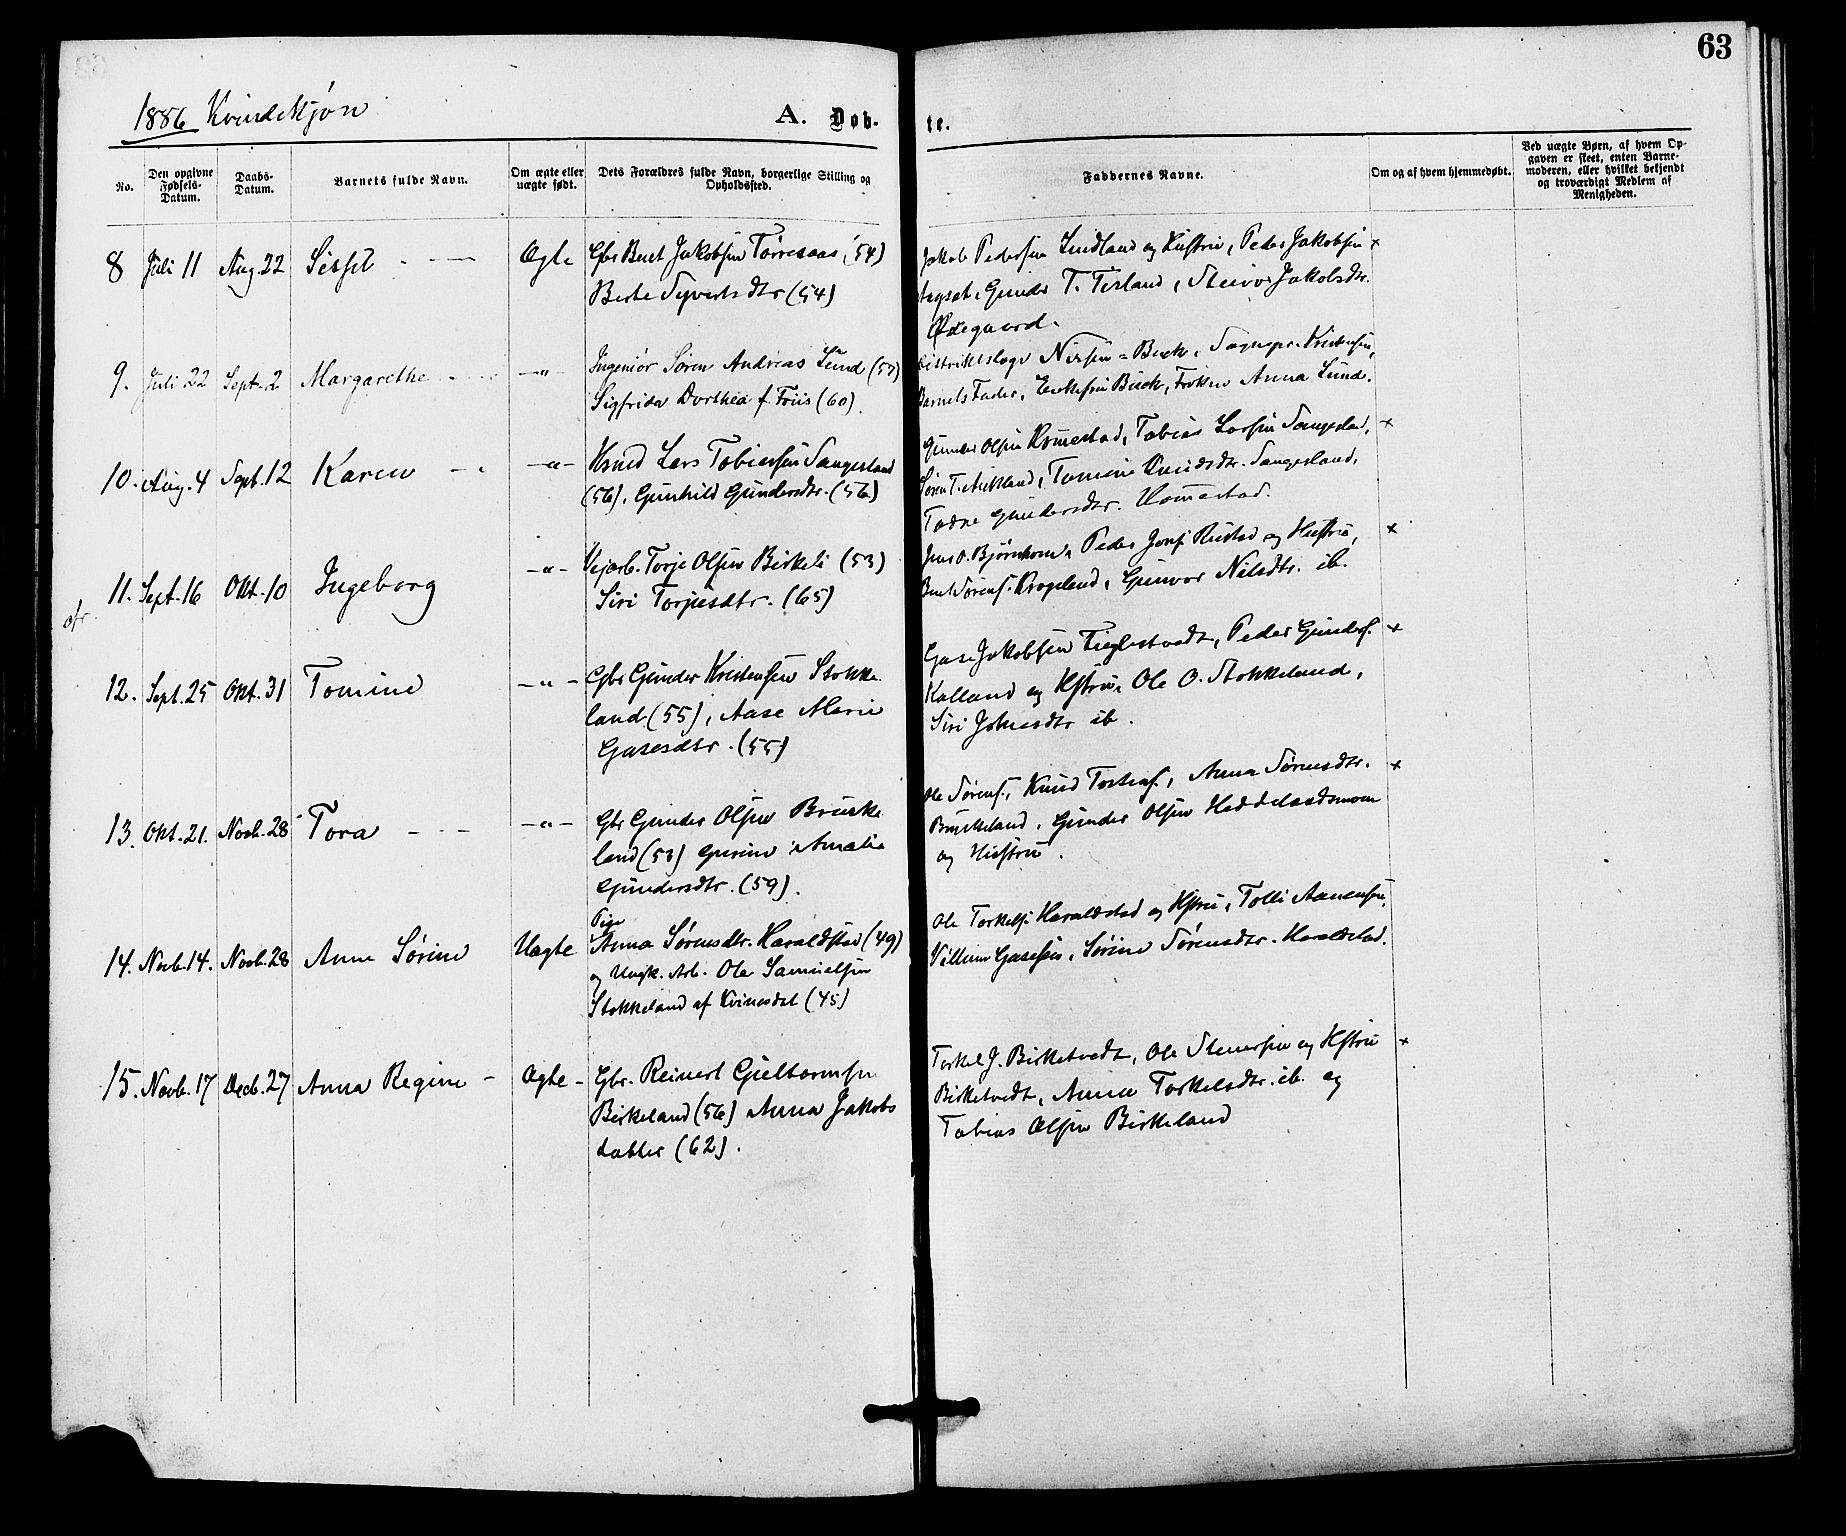 63
1886 Kvindekjøn
A. Døb-
te.
No.
Den opgivne Fødsels-Datum.
Daabs-Datum.
Barnets fulde Navn.
Om ægte eller uægte født.
Dets Forældres fulde Navn, borgerlige Stilling og Opholdssted.
Faddernes Navne.
Om og af hvem hjemmedøbt.
Ved uægte Børn, af hvem Opgaven er skeet, enten Barnemoderen, eller hvilket bekjendt og troværdigt Medlem af Menigheden.
8 Juli 11 Aug. 22 Sissel Ægte Gbr Bent Jakobsen Tørresaas (54)
Berte Syvertsdtr (54)
Jakob Pedersen Lindland og Hustru, Peder Jakobsen
Gunder T. Tesland, Jakobsdtr.
Ødegaard.
9. Juli 22 Sept. 2 Margarethe -"- Ingeniør Søren Andreas Lund (57)
Sigfrida Dorthea f. Friis (60).
Distriktslæge Nissen-Buck, Sognepr. Kristensen,
Barnets Fader, Enkefru Buck, Frøken Anna Lund.
10. Aug. 4 Sept. 12 Karen -"- Hsmd Lars Tobiassen Sangesland
(56), Gunhild Gundersdtr. (56)
Gunder Olsen Homestad, Tobias Larsen Sangesland,
Søren T. Tomine Knudsdtr. Sangesland,
Gundersdtr. Homestad.
11. Sept. 16 Okt. 10 Ingeborg -"- Vejarb. Torje Olsen Birkeli (53)
Siri Torjesdtr. (65)
Jens O. Bjørnhom, Peder Jonss. Rustad og Hustru,
Bent Sørens. Krogeland, Gunvor Nilsdtr. ib.
12. Sept. 25 Okt. 31 Tomine -"- Gbr Gunder Kristensen Stokke-
land (55), Aase Marie
Gasesdtr. (55)
Gase Jakobsen Tieglestvedt, Peder Gunders.
Kalland og Hstru, Ole O. Stokkeland,
Siri ib.
13. Okt. 21. Novb. 28 Tora -"- Gbr Gunder Olsen Bruske-
land (53) Gurine Amalie
Gundersdtr. (59).
Ole Sørens., Knud Anna Sørensdtr.
Bruskeland, Gunder Olsen Heddelandsmoen
og Hustru.
14. Novb. 14. Novb. 28 Anne Sørine Uægte Pige
Anna Sørensdtr. Haraldstad (49)
og Ungk. Arb. Ole Samuelsen
Stokkeland af Kvinesdal (45)
Ole Torkels. Haraldstad og Hstru, Tolli Aanensen,
Villum Gasesen, Sørine Sørensdtr. Haraldstad.
15. Novb. 17 Decb. 27 Anna Regine Ægte Gbr. Reinert Gieltormsen
Birkeland (56) Anna Jakobs-
datter (62).
Torkel J. Birketvedt, Ole Stenersen og Hstru
Birketvedt, Anna Torkelsdtr. ib. og
Tobias Olsen Birkeland